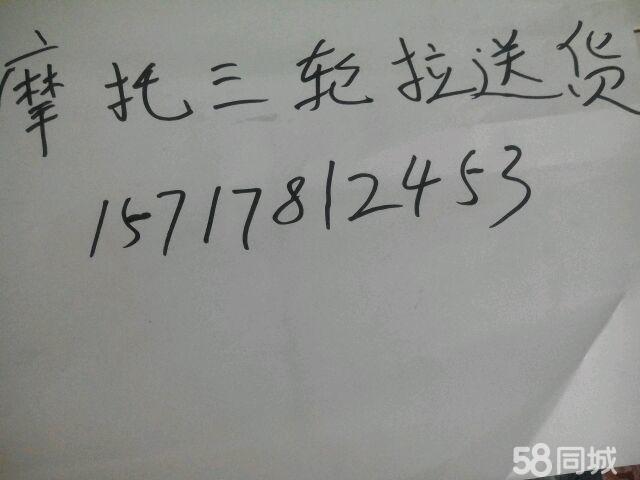 摩托三轮拉送货
15717812453
58同城